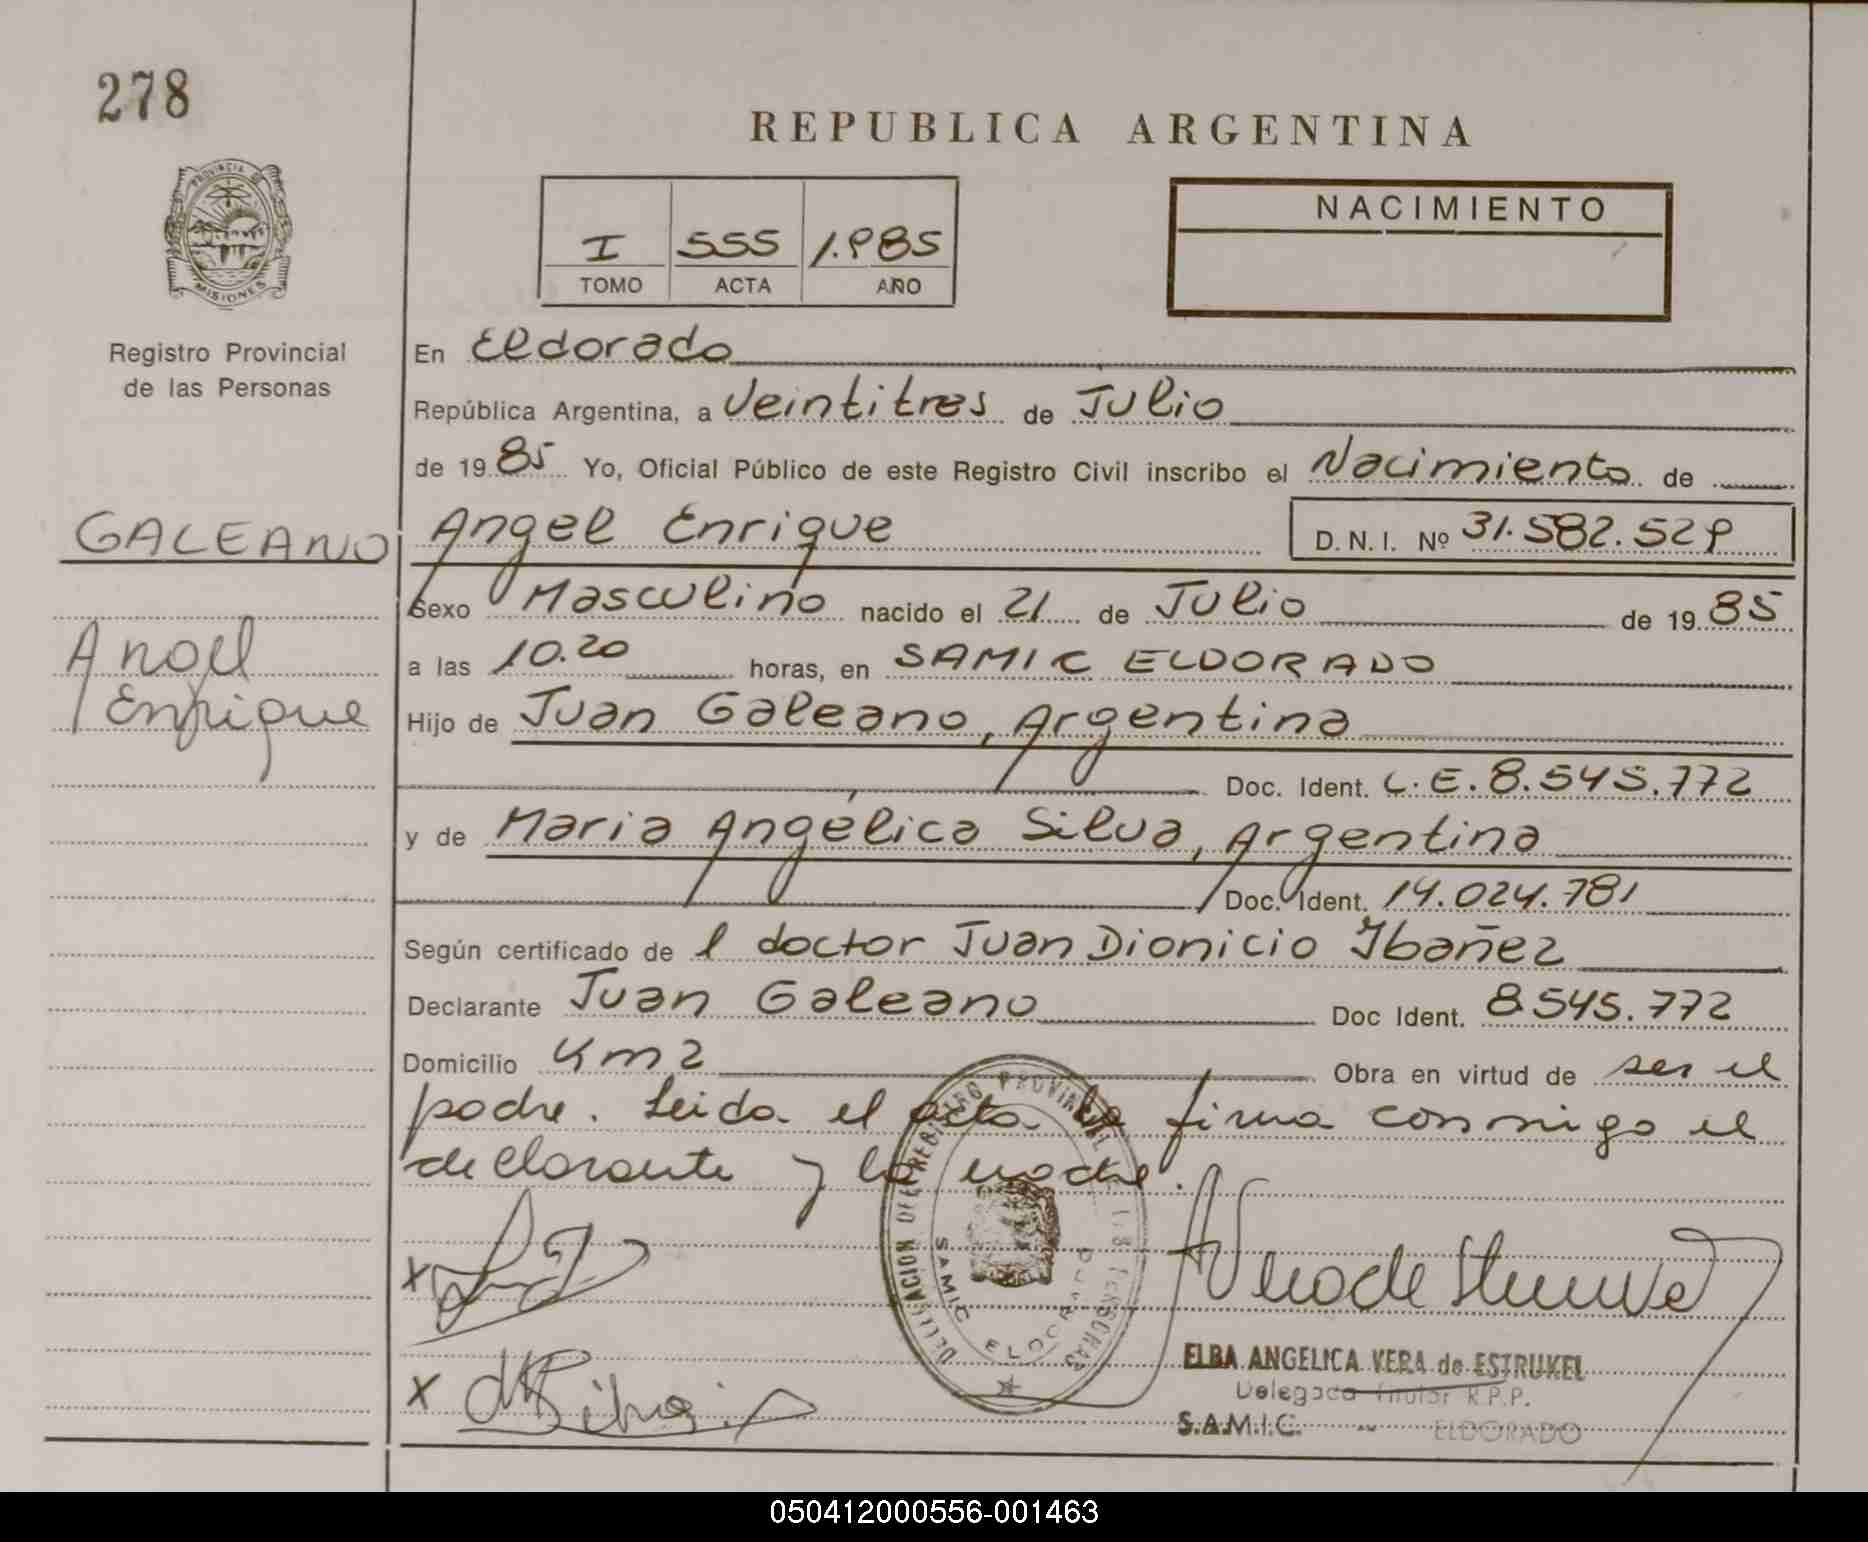 278
REPUBLICA ARGENTINA
PROVINCIA DE
MISIONES
Registro Provincial
de las Personas
I 555 1.985
TOMO ACTA AÑO
NACIMIENTO
En Eldorado
República Argentina, a Veintitres de Julio
de 1985 Yo, Oficial Público de este Registro Civil inscribo el Nacimiento de
GALEANO Angel Enrique D.N.I. Nº 31.582.529
Angel
Enrique
Sexo Masculino nacido el 21 de Julio de 1985
a las 10.20 horas, en SAMIC ELDORADO
Hijo de Juan Galeano, Argentina
Doc. Ident. L.E. 8.545.772
y de Maria Angélica Silva, Argentina
Doc. Ident. 14.024.781
Según certificado de l doctor Juan Dionicio Ibañez
Declarante Juan Galeano Doc Ident. 8545.772
Domicilio Km 2 Obra en virtud de ser el
padre. Leida el acta la firma conmigo el
declarante y la madre.
DELEGACION DEL REGISTRO PROVINCIAL DE LAS PERSONAS
SAMIC ELDORADO
x
x
ELBA ANGELICA VERA de ESTRUKEL
Delegada Titular R.P.P.
S.A.M.I.C. - ELDORADO
050412000556-001463